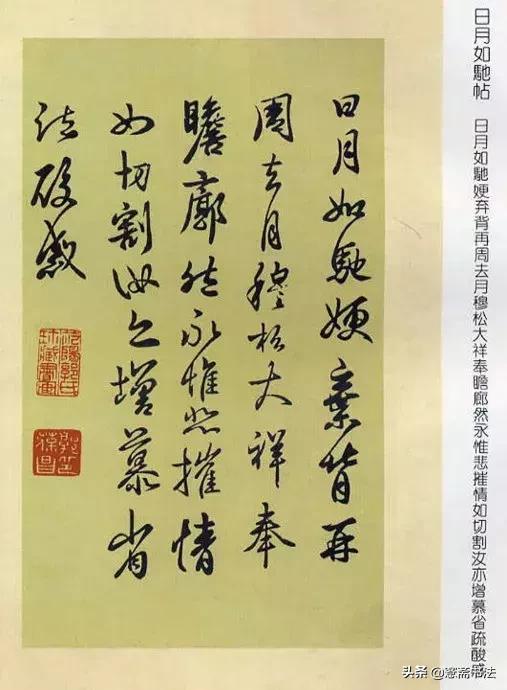 日月如馳帖 日月如馳㛐弃背再周去月穆松大祥奉瞻廊然永惟悲摧情如切割汝亦增慕省疏酸感
日月如馳㛐棄背再
周去月穆松大祥奉
瞻廓然永惟悲摧情
如切割汝亦增慕省
疏酸感
头条 @愙斋书法